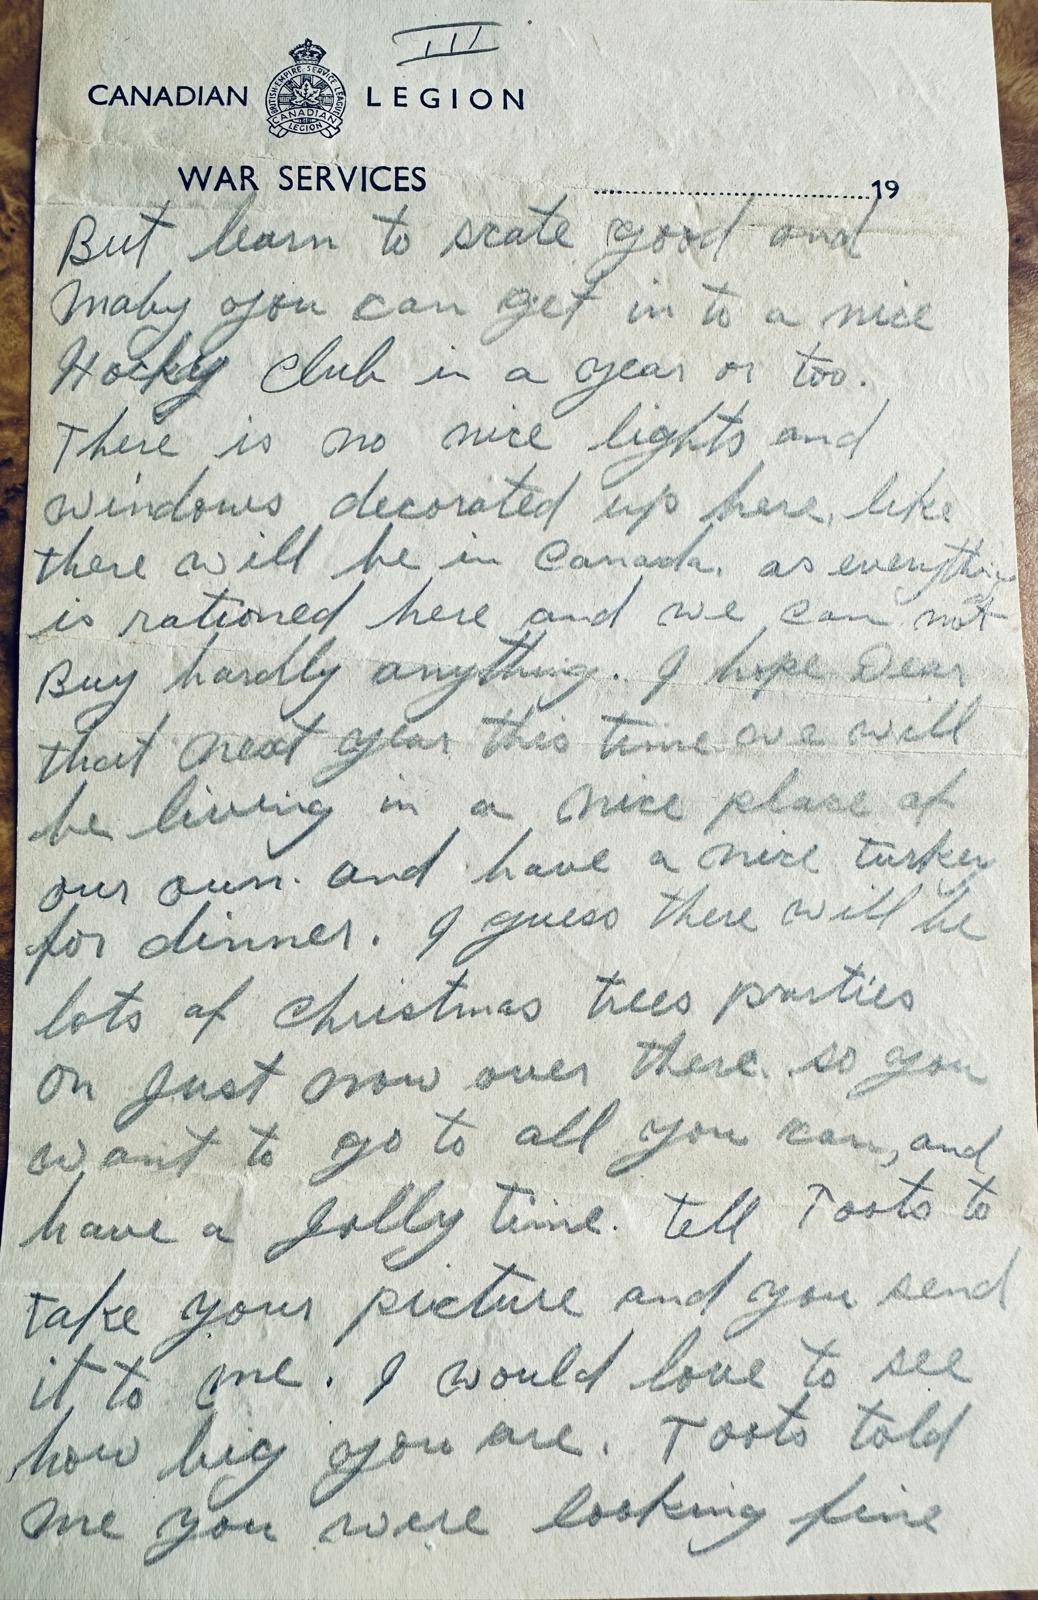 III
CANADIAN LEGION
BRITISH EMPIRE SERVICE LEAGUE
CANADIAN
LEGION
WAR SERVICES
....................19
But learn to scate good and
Maby you can get in to a nice
Hocky Club in a year or too.
There is no nice lights and
windows decorated up here, like
there will be in Canada. as everything
is rationed here and we can not
Buy hardly anything. I hope Dear
that next year this time we will
be living in a nice place of
our own. and have a nice turkey
for dinner. I guess there will be
lots of Christmas trees parties
on Just now over there. so you
want to go to all you can, and
have a Jolly time. tell Toots to
take your picture and you send
it to me. I would love to see
how big you are. Toots told
me you were looking fine